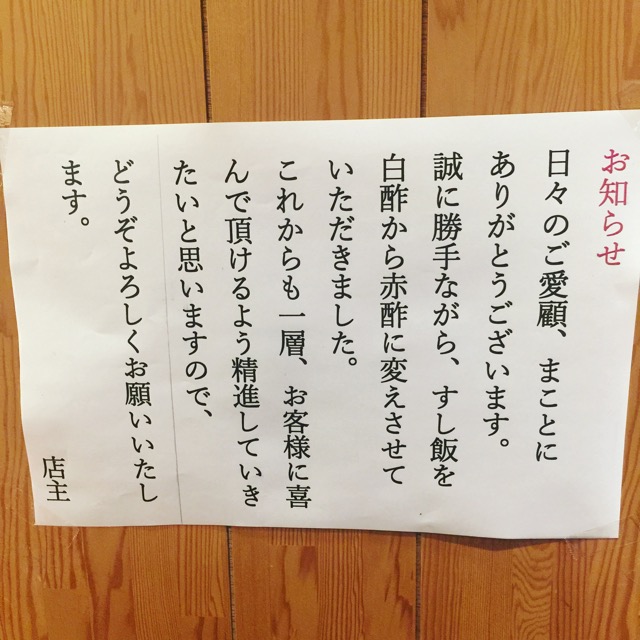 お知らせ
日々のご愛顧、まことに
ありがとうございます。
誠に勝手ながら、すし飯を
白酢から赤酢に変えさせて
いただきました。
これからも一層、お客様に喜
んで頂けるよう精進していき
たいと思いますので、
どうぞよろしくお願いいたし
ます。
店主